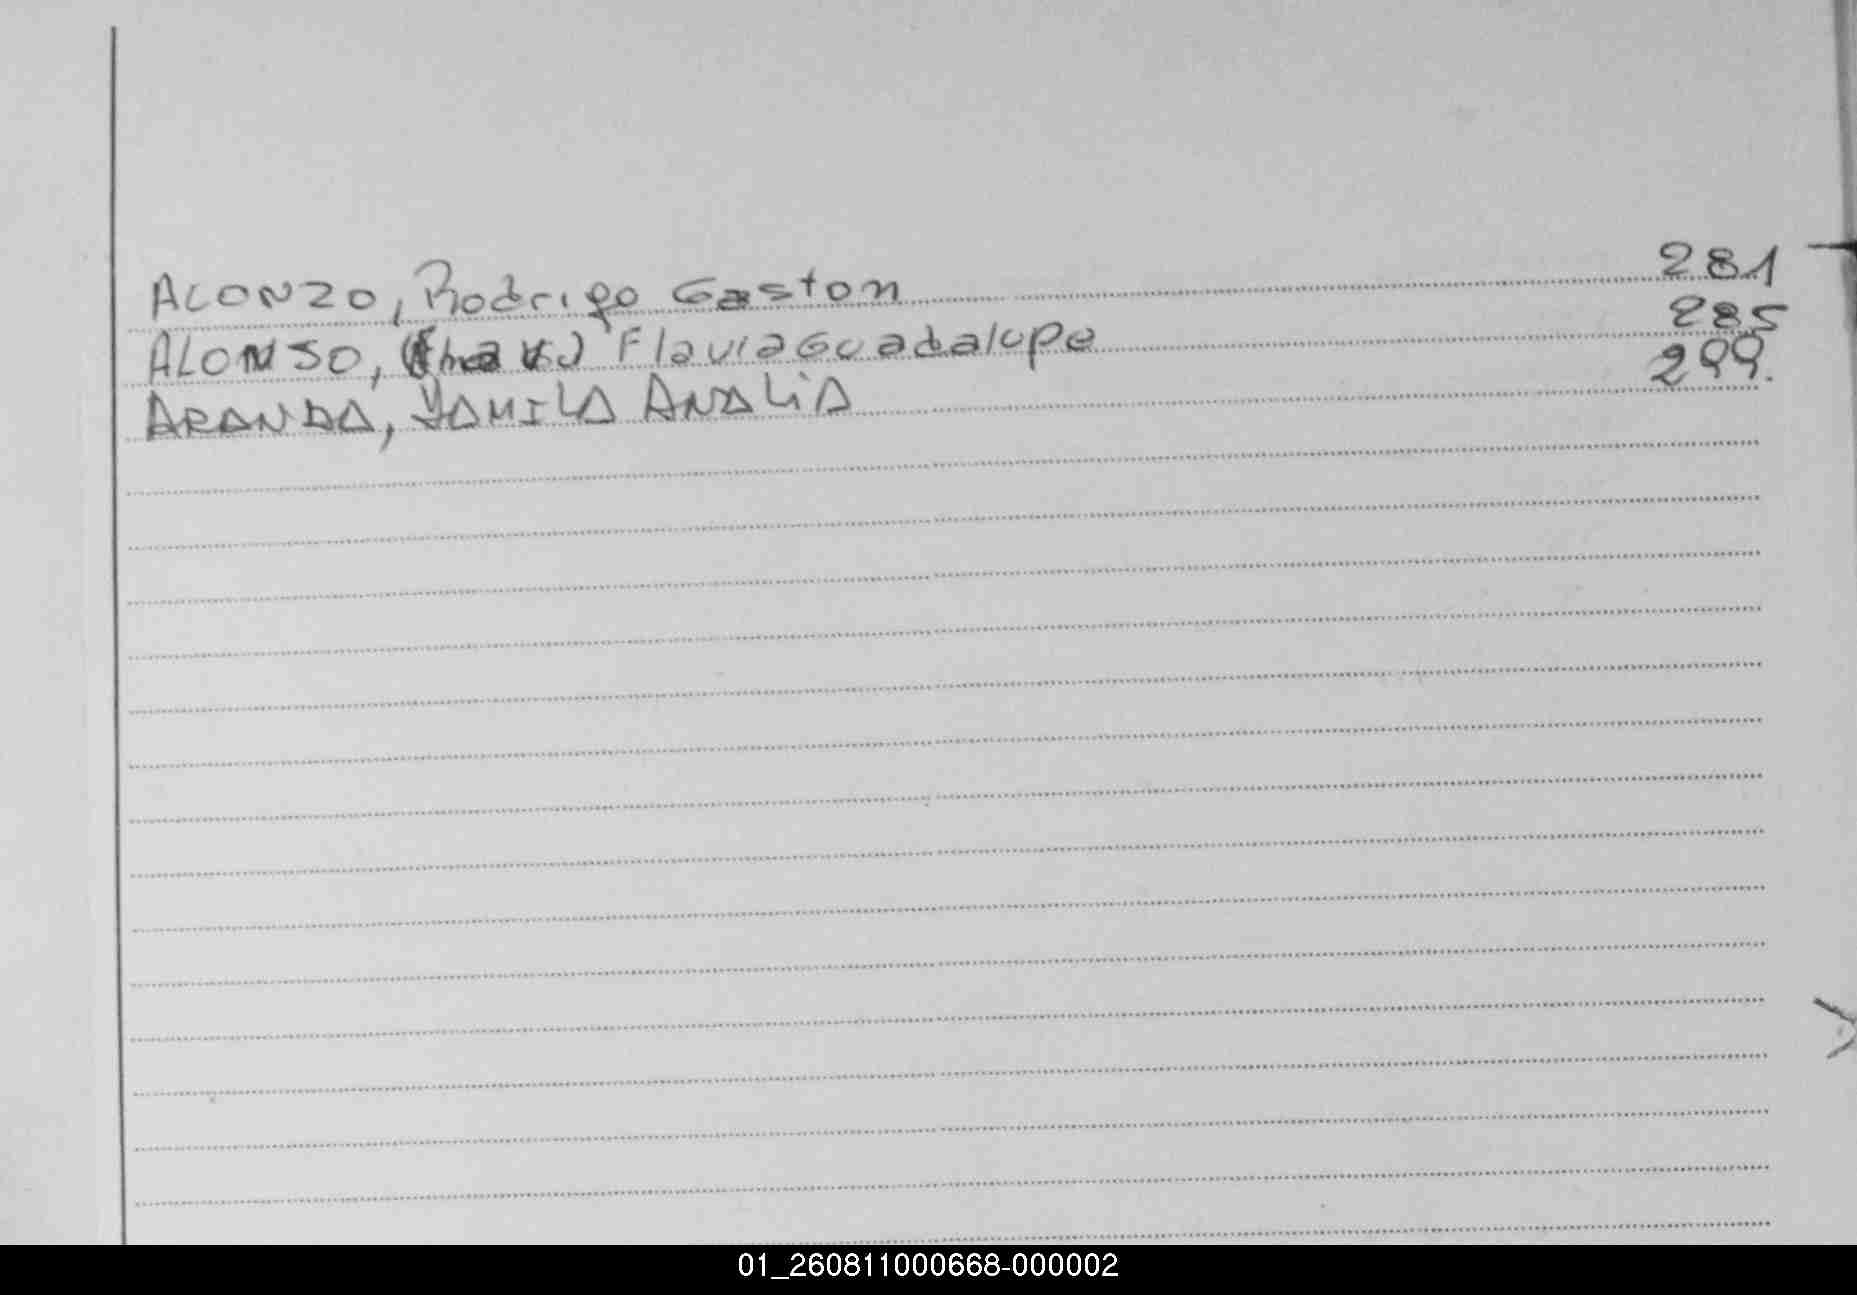 ALONZO, Rodrigo Gaston 281
ALONSO, Flavia Guadalupe 285
ARANDA, YAMILA ANALIA 299.
01_260811000668-000002